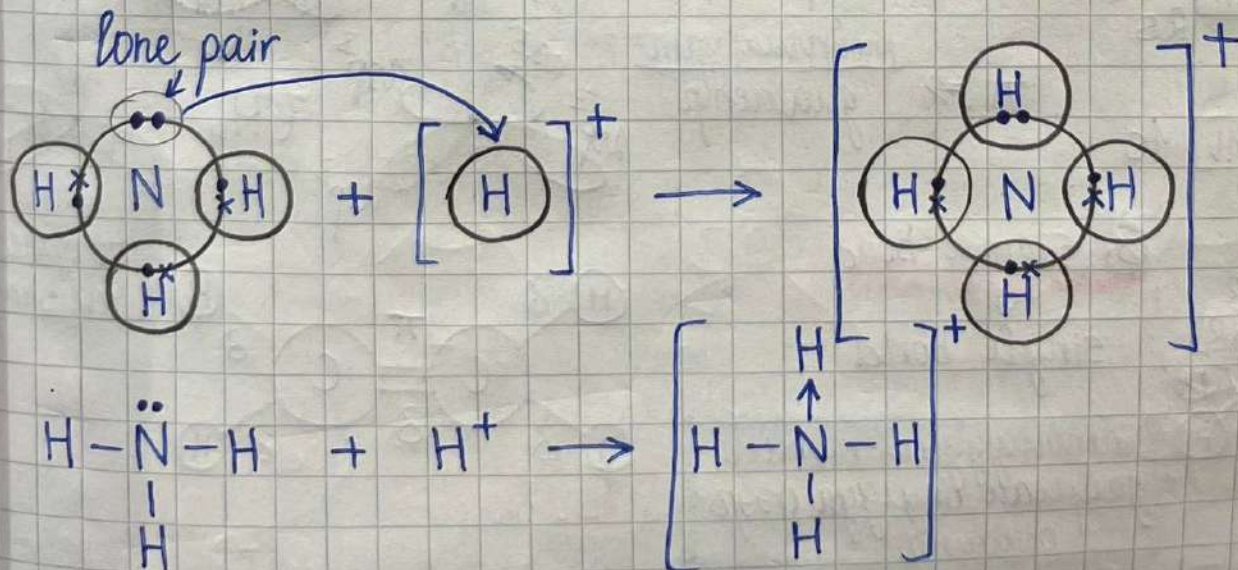 lone pair
H N H + [H]⁺ → [H N H]⁺
H H H
H–N̈–H + H⁺ → [H–N–H]⁺
H H H